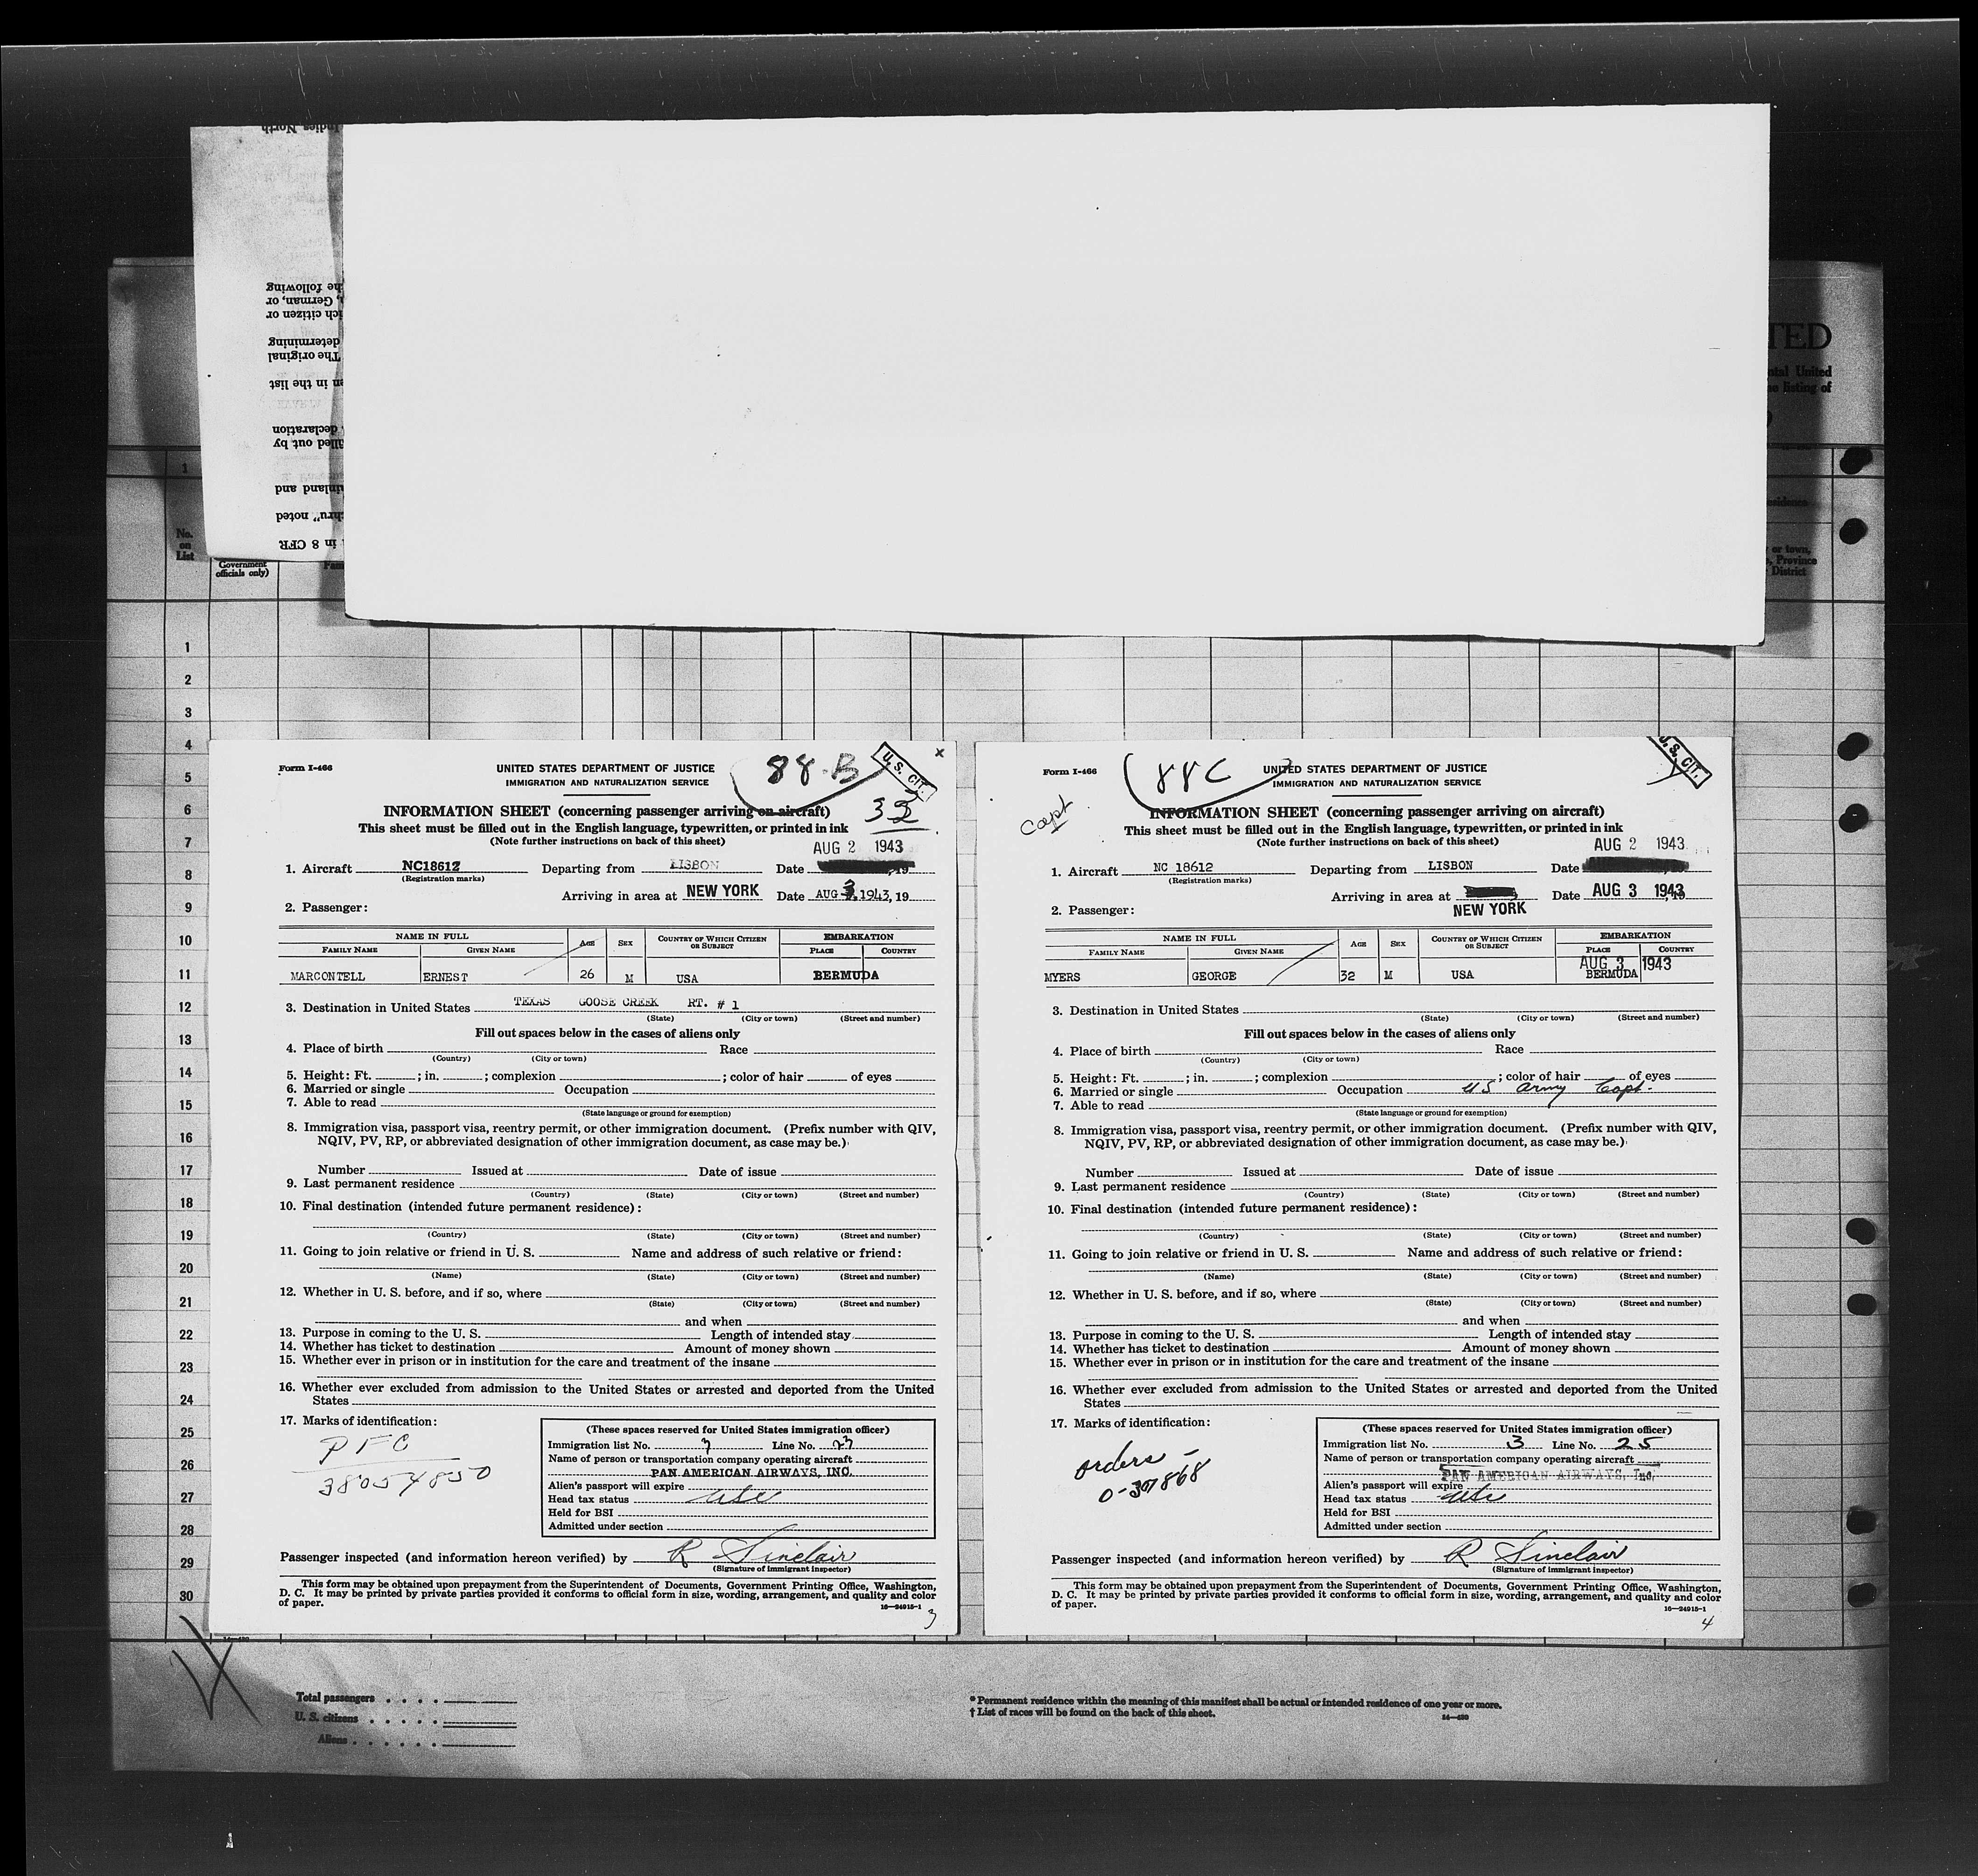 TED
ntal United
e listing of
1
No.
on
List
Government
officials only)
or town,
Province
District
1
2
3
4
5
6
7
8
9
10
11
12
13
14
15
16
17
18
19
20
21
22
23
24
25
26
27
28
29
30
Form I-466
88-B
U. S. CIT.
x
UNITED STATES DEPARTMENT OF JUSTICE
IMMIGRATION AND NATURALIZATION SERVICE
INFORMATION SHEET (concerning passenger arriving on aircraft)
This sheet must be filled out in the English language, typewritten, or printed in ink
(Note further instructions on back of this sheet)
AUG 2 1943
1. Aircraft NC18612 Departing from LISBON Date , 19
(Registration marks)
Arriving in area at NEW YORK Date AUG 3, 1943, 19
2. Passenger:
NAME IN FULL AGE SEX COUNTRY OF WHICH CITIZEN OR SUBJECT EMBARKATION
FAMILY NAME GIVEN NAME PLACE COUNTRY
MARCONTELL ERNEST 26 M USA BERMUDA
3. Destination in United States TEXAS GOOSE CREEK RT. # 1
(State) (City or town) (Street and number)
Fill out spaces below in the cases of aliens only
4. Place of birth Race
(Country) (City or town)
5. Height: Ft. ; in. ; complexion ; color of hair of eyes
6. Married or single Occupation
7. Able to read
(State language or ground for exemption)
8. Immigration visa, passport visa, reentry permit, or other immigration document. (Prefix number with QIV,
NQIV, PV, RP, or abbreviated designation of other immigration document, as case may be.)
Number Issued at Date of issue
9. Last permanent residence
(Country) (State) (City or town) (Street and number)
10. Final destination (intended future permanent residence):
(Country) (State) (City or town) (Street and number)
11. Going to join relative or friend in U. S. Name and address of such relative or friend:
(Name) (State) (City or town) (Street and number)
12. Whether in U. S. before, and if so, where
(State) (City or town) (Street and number)
and when
13. Purpose in coming to the U. S. Length of intended stay
14. Whether has ticket to destination Amount of money shown
15. Whether ever in prison or in institution for the care and treatment of the insane
16. Whether ever excluded from admission to the United States or arrested and deported from the United
States
17. Marks of identification:
PFC
38054850
(These spaces reserved for United States immigration officer)
Immigration list No. 3 Line No. 23
Name of person or transportation company operating aircraft
PAN AMERICAN AIRWAYS, INC.
Alien's passport will expire
Head tax status usc
Held for BSI
Admitted under section
Passenger inspected (and information hereon verified) by R Sinclair
(Signature of immigrant inspector)
This form may be obtained upon prepayment from the Superintendent of Documents, Government Printing Office, Washington,
D. C. It may be printed by private parties provided it conforms to official form in size, wording, arrangement, and quality and color
of paper.
16—24915-1
3
Form I-466
88C
U. S. CIT.
Capt
UNITED STATES DEPARTMENT OF JUSTICE
IMMIGRATION AND NATURALIZATION SERVICE
INFORMATION SHEET (concerning passenger arriving on aircraft)
This sheet must be filled out in the English language, typewritten, or printed in ink
(Note further instructions on back of this sheet)
AUG 2 1943
1. Aircraft NC 18612 Departing from LISBON Date
(Registration marks)
Arriving in area at Date AUG 3 1943
NEW YORK
2. Passenger:
NAME IN FULL AGE SEX COUNTRY OF WHICH CITIZEN OR SUBJECT EMBARKATION
FAMILY NAME GIVEN NAME PLACE COUNTRY
AUG 3 1943
MYERS GEORGE 32 M USA BERMUDA
3. Destination in United States
(State) (City or town) (Street and number)
Fill out spaces below in the cases of aliens only
4. Place of birth Race
(Country) (City or town)
5. Height: Ft. ; in. ; complexion ; color of hair of eyes
6. Married or single Occupation US Army Capt.
7. Able to read
(State language or ground for exemption)
8. Immigration visa, passport visa, reentry permit, or other immigration document. (Prefix number with QIV,
NQIV, PV, RP, or abbreviated designation of other immigration document, as case may be.)
Number Issued at Date of issue
9. Last permanent residence
(Country) (State) (City or town) (Street and number)
10. Final destination (intended future permanent residence):
(Country) (State) (City or town) (Street and number)
11. Going to join relative or friend in U. S. Name and address of such relative or friend:
(Name) (State) (City or town) (Street and number)
12. Whether in U. S. before, and if so, where
(State) (City or town) (Street and number)
and when
13. Purpose in coming to the U. S. Length of intended stay
14. Whether has ticket to destination Amount of money shown
15. Whether ever in prison or in institution for the care and treatment of the insane
16. Whether ever excluded from admission to the United States or arrested and deported from the United
States
17. Marks of identification:
orders -
0-307868
(These spaces reserved for United States immigration officer)
Immigration list No. 3 Line No. 25
Name of person or transportation company operating aircraft
PAN AMERICAN AIRWAYS, Inc.
Alien's passport will expire
Head tax status usc
Held for BSI
Admitted under section
Passenger inspected (and information hereon verified) by R Sinclair
(Signature of immigrant inspector)
This form may be obtained upon prepayment from the Superintendent of Documents, Government Printing Office, Washington,
D. C. It may be printed by private parties provided it conforms to official form in size, wording, arrangement, and quality and color
of paper.
16—24915-1
4
Total passengers
U. S. citizens
Aliens
* Permanent residence within the meaning of this manifest shall be actual or intended residence of one year or more.
† List of races will be found on the back of this sheet.